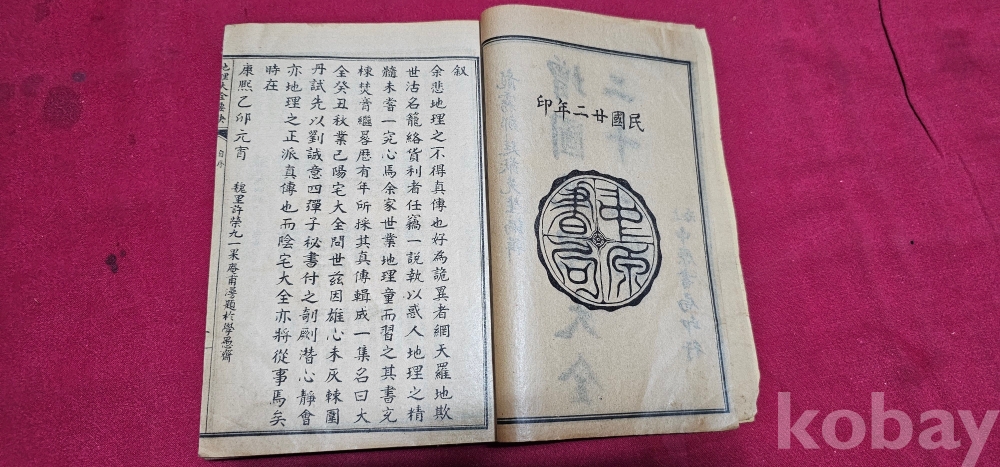 民國廿二年印
中原書局
叙
余悲地理之不得真傳也好為詭異者網天羅地欺
世沽名籠絡貨利者任竊一說執以惑人地理之精
髓未嘗一究心焉余家世業地理童而習之其書充
棟焚膏繼晷歷有年所採其真傳輯成一集名曰大
全癸丑秋業已陽宅大全問世茲因雄心未灰棘圍
丹試先以劉誠意四彈子秘書付之剞劂潛心靜會
亦地理之正派真傳也而陰宅大全亦將從事焉矣
時在
康熙乙卯元宵 魏里許榮九一果菴甫漫題於學愚齋
地理大全要訣 自序
kobay